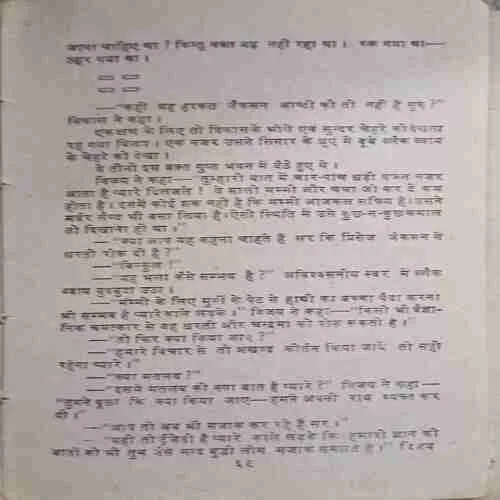 जाना चाहिए था ? किन्तु वक्त यह नहीं रहा था । रुक गया था—
ठहर गया था ।
—"कहीं यह हरकत जैक्सन आन्टी की तो नहीं है गुरु ?"
विकास ने कहा ।
एकक्षण के लिए तो विकासके भोले एवं सुन्दर चेहरे को देखता
रह गया विजय । एक नजर उसने सिगार के धुएं में डूबे ब्लैक ब्वाय
के चेहरे को देखा ।
वे तीनों इस वक्त गुप्त भवन में बैठे हुए थे ।
विजय ने कहा— तुम्हारी बात में चार-पांच छटांक वजन नजर
आता है प्यारे दिलजले ! वे साली मम्मी और चचा जो कर दें कम
होता है । इसमें कोई शक नहीं है कि मम्मी आजकल सक्रिय है । उसने
मर्डर लैण्ड भी बसा लिया है । ऐसी स्थिति में उसे कुछ-न-कुछकमाल
तो दिखाना ही था ।"
—"क्या आप यह कहना चाहते हैं सर कि प्रिंसेज जैक्सन ने
धरती रोक दी है ?"
—"बिल्कुल !"
—"यह भला कैसे सम्भव है ?" अविश्वसनीय स्वर में ब्लैक
ब्वाय बुदबुदा उठा ।
—"मम्मी के लिए मुर्गी के पेट से हाथी का बच्चा पैदा करना
भी सम्भव है प्यारेकाले लड़के ।" विजय ने कहा—"किसी भी वैज्ञा-
निक चमत्कार से वह धरती और चन्द्रमा को रोक सकती है ।"
—"तो फिर क्या किया जाए ?"
—"हमारे विचार से तो अखण्ड कीर्तन किया जाये तो सही
रहेगा प्यारे ।"
—"क्या मतलब ?"
—"इसमें मतलब की क्या बात है प्यारे ?" विजय ने कहा—
"तुमने पूछा कि क्या किया जाए—हमने अपनी राय व्यक्त कर
दी ।"
—"आप तो अब भी मजाक कर रहे हैं सर ।"
—"यही तो ट्रेजिडी है प्यारे काले लड़के कि हमारी ज्ञान की
बातों को भी तुम जैसे मन्द बुद्धी लोग मजाक समझते हैं ।"
६९